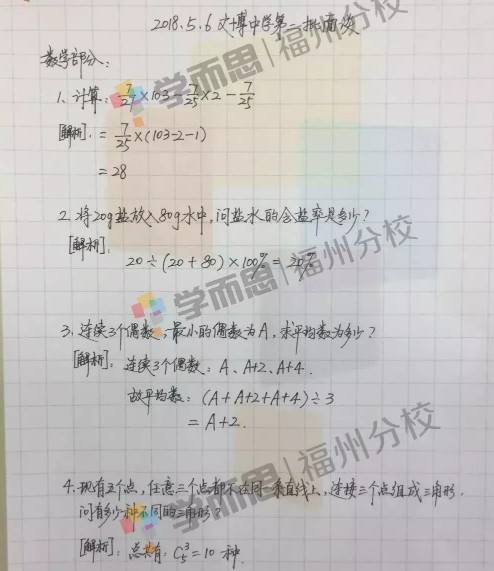 2018.5.6 文博中学第二批面谈
数学部分:
1、计算: 7/25×103-7/25×2-7/25
[解析]: = 7/25×(103-2-1)
= 28
2、将20g盐放入80g水中,问盐水的含盐率是多少?
[解析]:
20÷(20+80)×100%=20%
3、连续3个偶数,最小的偶数为A,求平均数为多少?
[解析]: 连续3个偶数: A、A+2、A+4.
故平均数: (A+A+2+A+4)÷3
= A+2.
4、现有五个点,任意三个点都不在同一条直线上,连接三个点组成三角形.
问有多少种不同的三角形?
[解析]: 总共有: C₅³=10 种.
学而思|福州分校
学而思|福州分校
学而思|福州分校